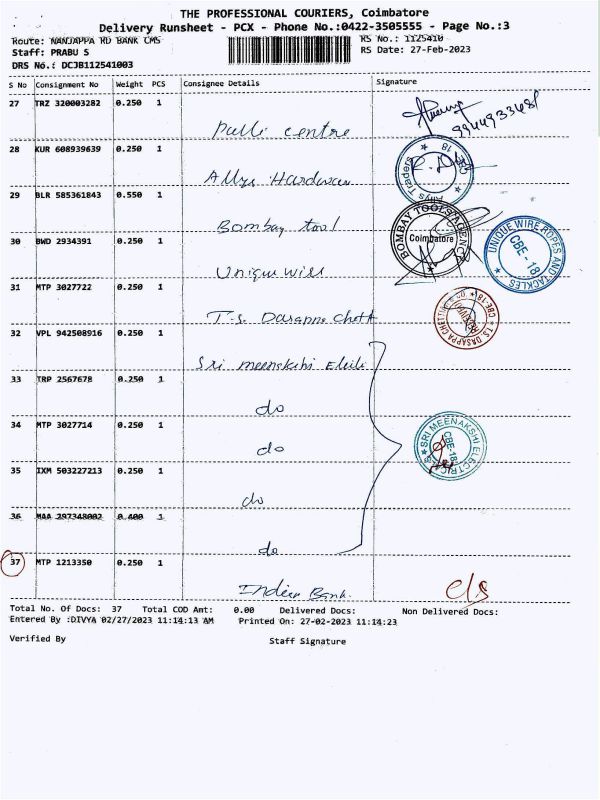 THE PROFESSIONAL COURIERS, Coimbatore
Delivery Runsheet - PCX - Phone No.:0422-3505555 - Page No.:3
Route: NANJAPPA RD BANK CMS RS No.: 1125410
Staff: PRABU S RS Date: 27-Feb-2023
DRS No.: DCJB112541003
S No Consignment No Weight PCS Consignee Details Signature
27 TRZ 320003282 0.250 1
Pulli centre
9944933481
28 KUR 608939639 0.250 1
Allys Hardware
Allys Traders
CBE. 18
29 BLR 585361843 0.550 1
Bombay tool
BOMBAY TOOLS AGENCY
Coimbatore
30 BWD 2934391 0.250 1
Unique wire
UNIQUE WIRE ROPES AND TACKLES
CBE - 18
31 MTP 3027722 0.250 1
T.s. Dasappa Chett
T.S. DASAPPA CHETTIAR
CBE-18
32 VPL 942508916 0.250 1
Sri meenakshi
33 TRP 2567678 0.250 1
do
34 MTP 3027714 0.250 1
do
SRI MEENAKSHI ELECTRICALS
CBE-18
35 IXM 503227213 0.250 1
do
36 MAA 297348002 0.400 1
do
37 MTP 1213350 0.250 1
Indian Bank.
C/S
Total No. Of Docs: 37 Total COD Amt: 0.00 Delivered Docs: Non Delivered Docs:
Entered By :DIVYA 02/27/2023 11:14:13 AM Printed On: 27-02-2023 11:14:23
Verified By Staff Signature